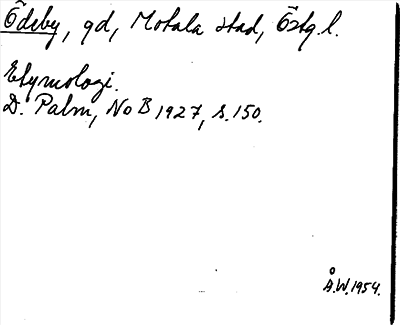 Ödeby, gd, Motala stad, Östg.l.
Etymologi.
D. Palm, NoB 1927, s. 150.
Å.W. 1954.